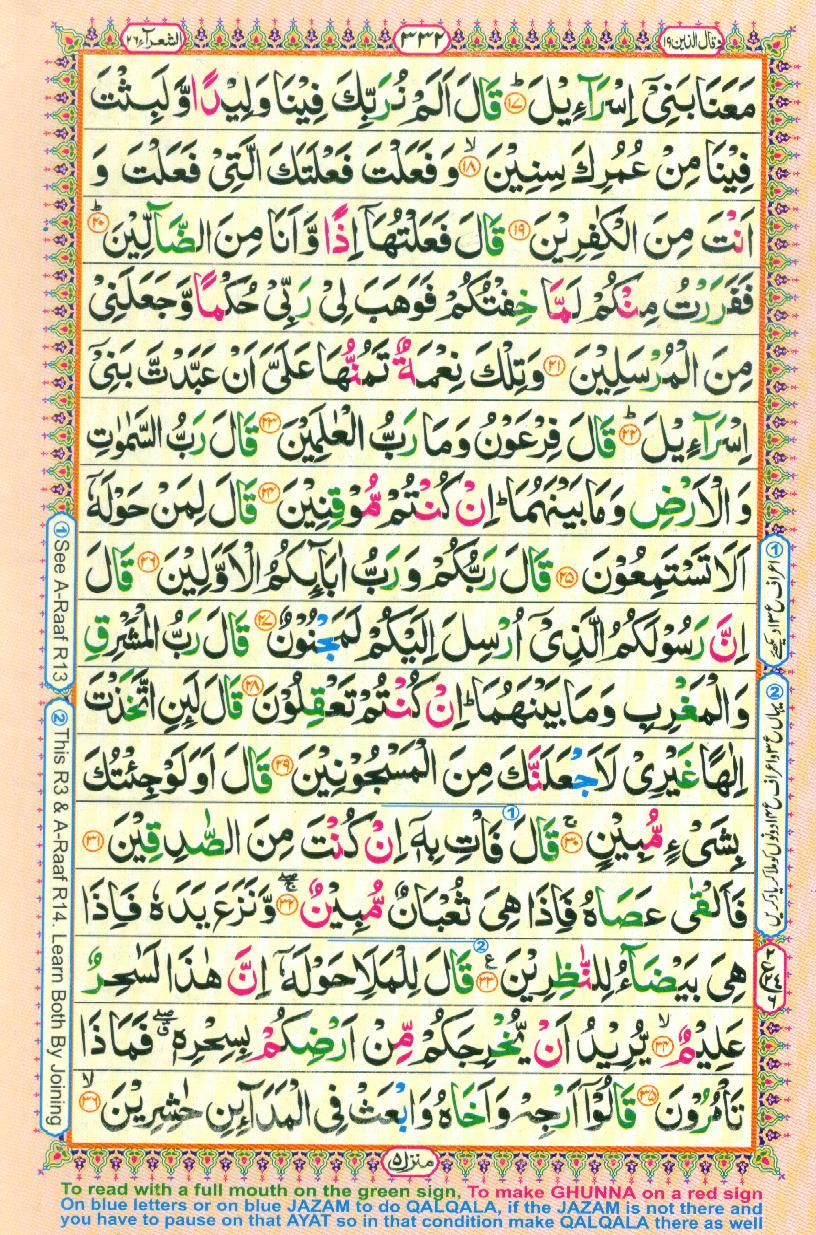 وقال الذين ١٩
٣٣٢
الشعرآء ٢٦
مَعَنَا بَنِىْۤ اِسْرَآءِيْلَ ؕ‏﴿۱۷﴾ قَالَ اَلَمْ نُرَبِّكَ فِيْنَا وَلِيْدًا وَّلَبِثْتَ
فِيْنَا مِنْ عُمُرِكَ سِنِيْنَ ۙ‏﴿۱۸﴾ وَفَعَلْتَ فَعْلَتَكَ الَّتِىْ فَعَلْتَ وَ
اَنْتَ مِنَ الْكٰفِرِيْنَ‏﴿۱۹﴾ قَالَ فَعَلْتُهَاۤ اِذًا وَّاَنَا مِنَ الضَّآلِّيْنَ ؕ‏﴿۲۰﴾
فَفَرَرْتُ مِنْكُمْ لَمَّا خِفْتُكُمْ فَوَهَبَ لِىْ رَبِّىْ حُكْمًا وَّجَعَلَنِىْ
مِنَ الْمُرْسَلِيْنَ‏﴿۲۱﴾ وَتِلْكَ نِعْمَةٌ تَمُنُّهَا عَلَىَّ اَنْ عَبَّدْتَّ بَنِىْۤ
اِسْرَآءِيْلَ ؕ‏﴿۲۲﴾ قَالَ فِرْعَوْنُ وَمَا رَبُّ الْعٰلَمِيْنَ‏﴿۲۳﴾ قَالَ رَبُّ السَّمٰوٰتِ
وَالْاَرْضِ وَمَا بَيْنَهُمَا ؕ اِنْ كُنْتُمْ مُّوْقِنِيْنَ‏﴿۲۴﴾ قَالَ لِمَنْ حَوْلَهٗۤ
اَلَا تَسْتَمِعُوْنَ‏﴿۲۵﴾ قَالَ رَبُّكُمْ وَرَبُّ اٰبَآئِكُمُ الْاَوَّلِيْنَ‏﴿۲۶﴾ قَالَ
اِنَّ رَسُوْلَكُمُ الَّذِىْۤ اُرْسِلَ اِلَيْكُمْ لَمَجْنُوْنٌ‏﴿۲۷﴾ قَالَ رَبُّ الْمَشْرِقِ
وَالْمَغْرِبِ وَمَا بَيْنَهُمَا ؕ اِنْ كُنْتُمْ تَعْقِلُوْنَ‏﴿۲۸﴾ قَالَ لَئِنِ اتَّخَذْتَ
اِلٰهًا غَيْرِىْ لَاَجْعَلَنَّكَ مِنَ الْمَسْجُوْنِيْنَ‏﴿۲۹﴾ قَالَ اَوَلَوْ جِئْتُكَ
بِشَىْءٍ مُّبِيْنٍ ۚ‏﴿۳۰﴾ قَالَ فَاْتِ بِهٖۤ اِنْ كُنْتَ مِنَ الصّٰدِقِيْنَ‏﴿۳۱﴾
فَاَلْقٰى عَصَاهُ فَاِذَا هِىَ ثُعْبَانٌ مُّبِيْنٌ ۖۚ‏﴿۳۲﴾ وَّنَزَعَ يَدَهٗ فَاِذَا
هِىَ بَيْضَآءُ لِلنّٰظِرِيْنَ‏﴿۳۳﴾ قَالَ لِلْمَلَاِ حَوْلَهٗۤ اِنَّ هٰذَا لَسٰحِرٌ
عَلِيْمٌ ۙ‏﴿۳۴﴾ يُّرِيْدُ اَنْ يُّخْرِجَكُمْ مِّنْ اَرْضِكُمْ بِسِحْرِهٖ ۖق فَمَاذَا
تَاْمُرُوْنَ‏﴿۳۵﴾ قَالُوْۤا اَرْجِهْ وَاَخَاهُ وَابْعَثْ فِى الْمَدَآئِنِ حٰشِرِيْنَ ۙ‏﴿۳۶﴾
منزل ۵
① See A-Raaf R13
② This R3 & A-Raaf R14. Learn Both By Joining
To read with a full mouth on the green sign, To make GHUNNA on a red sign
On blue letters or on blue JAZAM to do QALQALA, if the JAZAM is not there and
you have to pause on that AYAT so in that condition make QALQALA there as well